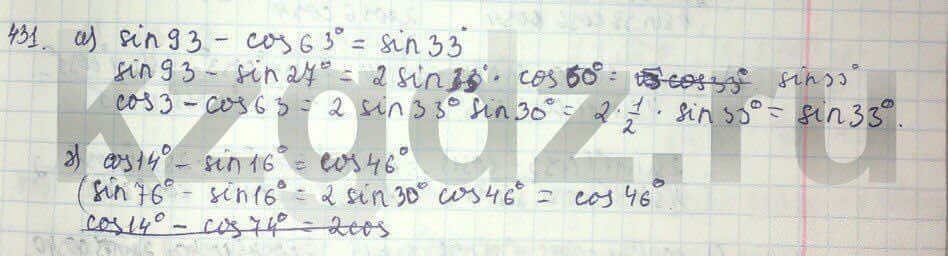 431. а) sin 93 - cos 63° = sin 33°
sin 93 - sin 27° = 2 sin 33° · cos 60° = sin 33°
cos 3 - cos 63 = 2 sin 33° sin 30° = 2 · 1/2 · sin 33° = sin 33°.
cos 14° - sin 16° = cos 46°
(sin 76° - sin 16° = 2 sin 30° cos 46° = cos 46°
cos 14° - cos 74° = 2 cos
kzgdz.ru